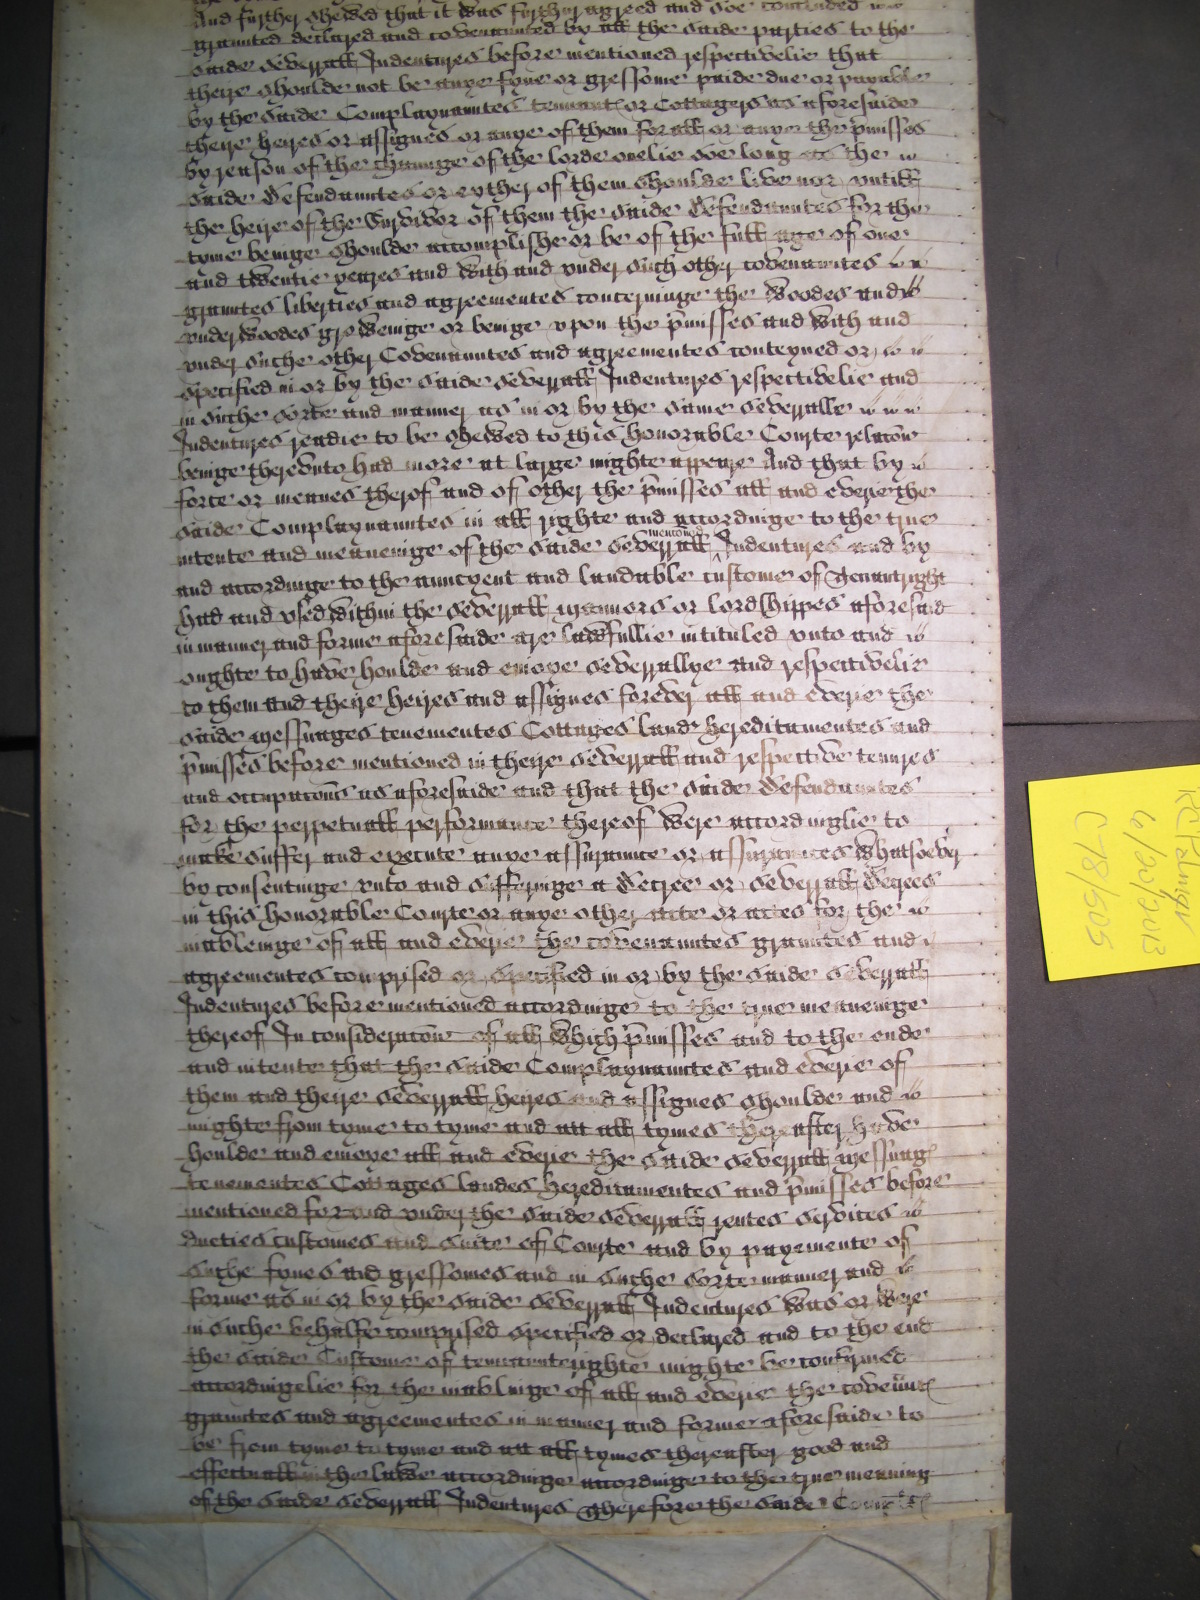 And further shewed that it was further agreed and soe concluded
graunted declared and covenaunted by all the saide parties to the
saide severall Indentures before mentioned respectivelie that
theire shoulde not be anye fyne or gressome paide due or payable
by the saide Complaynauntes tennant or Cottagers as aforesaide
theire heires or assignes or anye of them for all or anye the pmisses
by reason of the chaunge of the lorde onelie soe long as the
saide defendauntes or eyther of them shoulde live nor untill
the heire of the Survivor of them the saide defendauntes for the
tyme beinge shoulde accomplishe or be of the full age of one
and twentie yeares and with and under such other covenauntes
grauntes liberties and agreementes concerninge the woodes and
underwoodes growenge or beinge upon the pmisses and with and
under suche other Covenauntes and agreementes conteyned or
specified in or by the saide severall Indentures respectivelie and
in suche sorte and manner as in or by the same severalle
Indentures readie to be shewed to this honorable Courte relacon
beinge therevnto had more at large mighte appeare And that by
force or meanes therof and of other the pmisses all and everie the
saide Complaynauntes in all righte and accordinge to the true
intente and meaneinge of the saide severall mentioned Indentures and by
and accordinge to the auncyent and laudable custome of Tenantright
had and vsed within the severall mannors or lordshippes aforesaid
in manner and forme aforesaide are lawfullie intituled vnto and
oughte to have houlde and enioye severallye and respectivelie
to them and theire heires and assignes forever all and everie the
saide messuages tenementes Cottages land hereditamentes and
pmisses before mentioned in theire severall and respective tenures
and occupacons as aforesaide and that the saide defendauntes
for the perpetuall performance thereof were accordinglie to
make suffer and execute anye assurance or assurances whatsoever
by consentinge vnto and sufferinge a decree or severall decrees
in this honorable Courte or anye other acte or actes for the
inableinge of all and everie the covenauntes grauntes and
agreementes comprised or specified in or by the saide severall
Indentures before mentioned accordinge to the true meaneinge
thereof In consideracon of all which pmisses and to the ende
and intente that the saide Complaynauntes and everie of
them and theire severall heires and assignes shoulde and
mighte from tyme to tyme and att all tymes thereafter have
houlde and enioye all and everie the saide severall messuag
tenementes Cottages landes hereditamentes and pmisses before
mentioned for and under the saide severall rentes services
dueties customes and suite of Courte and by payemente of
suche fynes and gressomes and in suche sorte manner and
forme as in or by the saide severall Indentures was or were
in suche behalfe comprised specified or declared and to the end
the saide Custome of tennauntrighte mighte be confirmed
accordingelie for the inablinge of all and everie the covennt
grauntes and agreementes in manner and forme aforesaide to
be from tyme to tyme and att all tymes thereafter good and
effectuall in the lawe accordinge accordinge to the true meaning
of the saide severall Indentures Therefore the saide
6/20/2013
C78/505